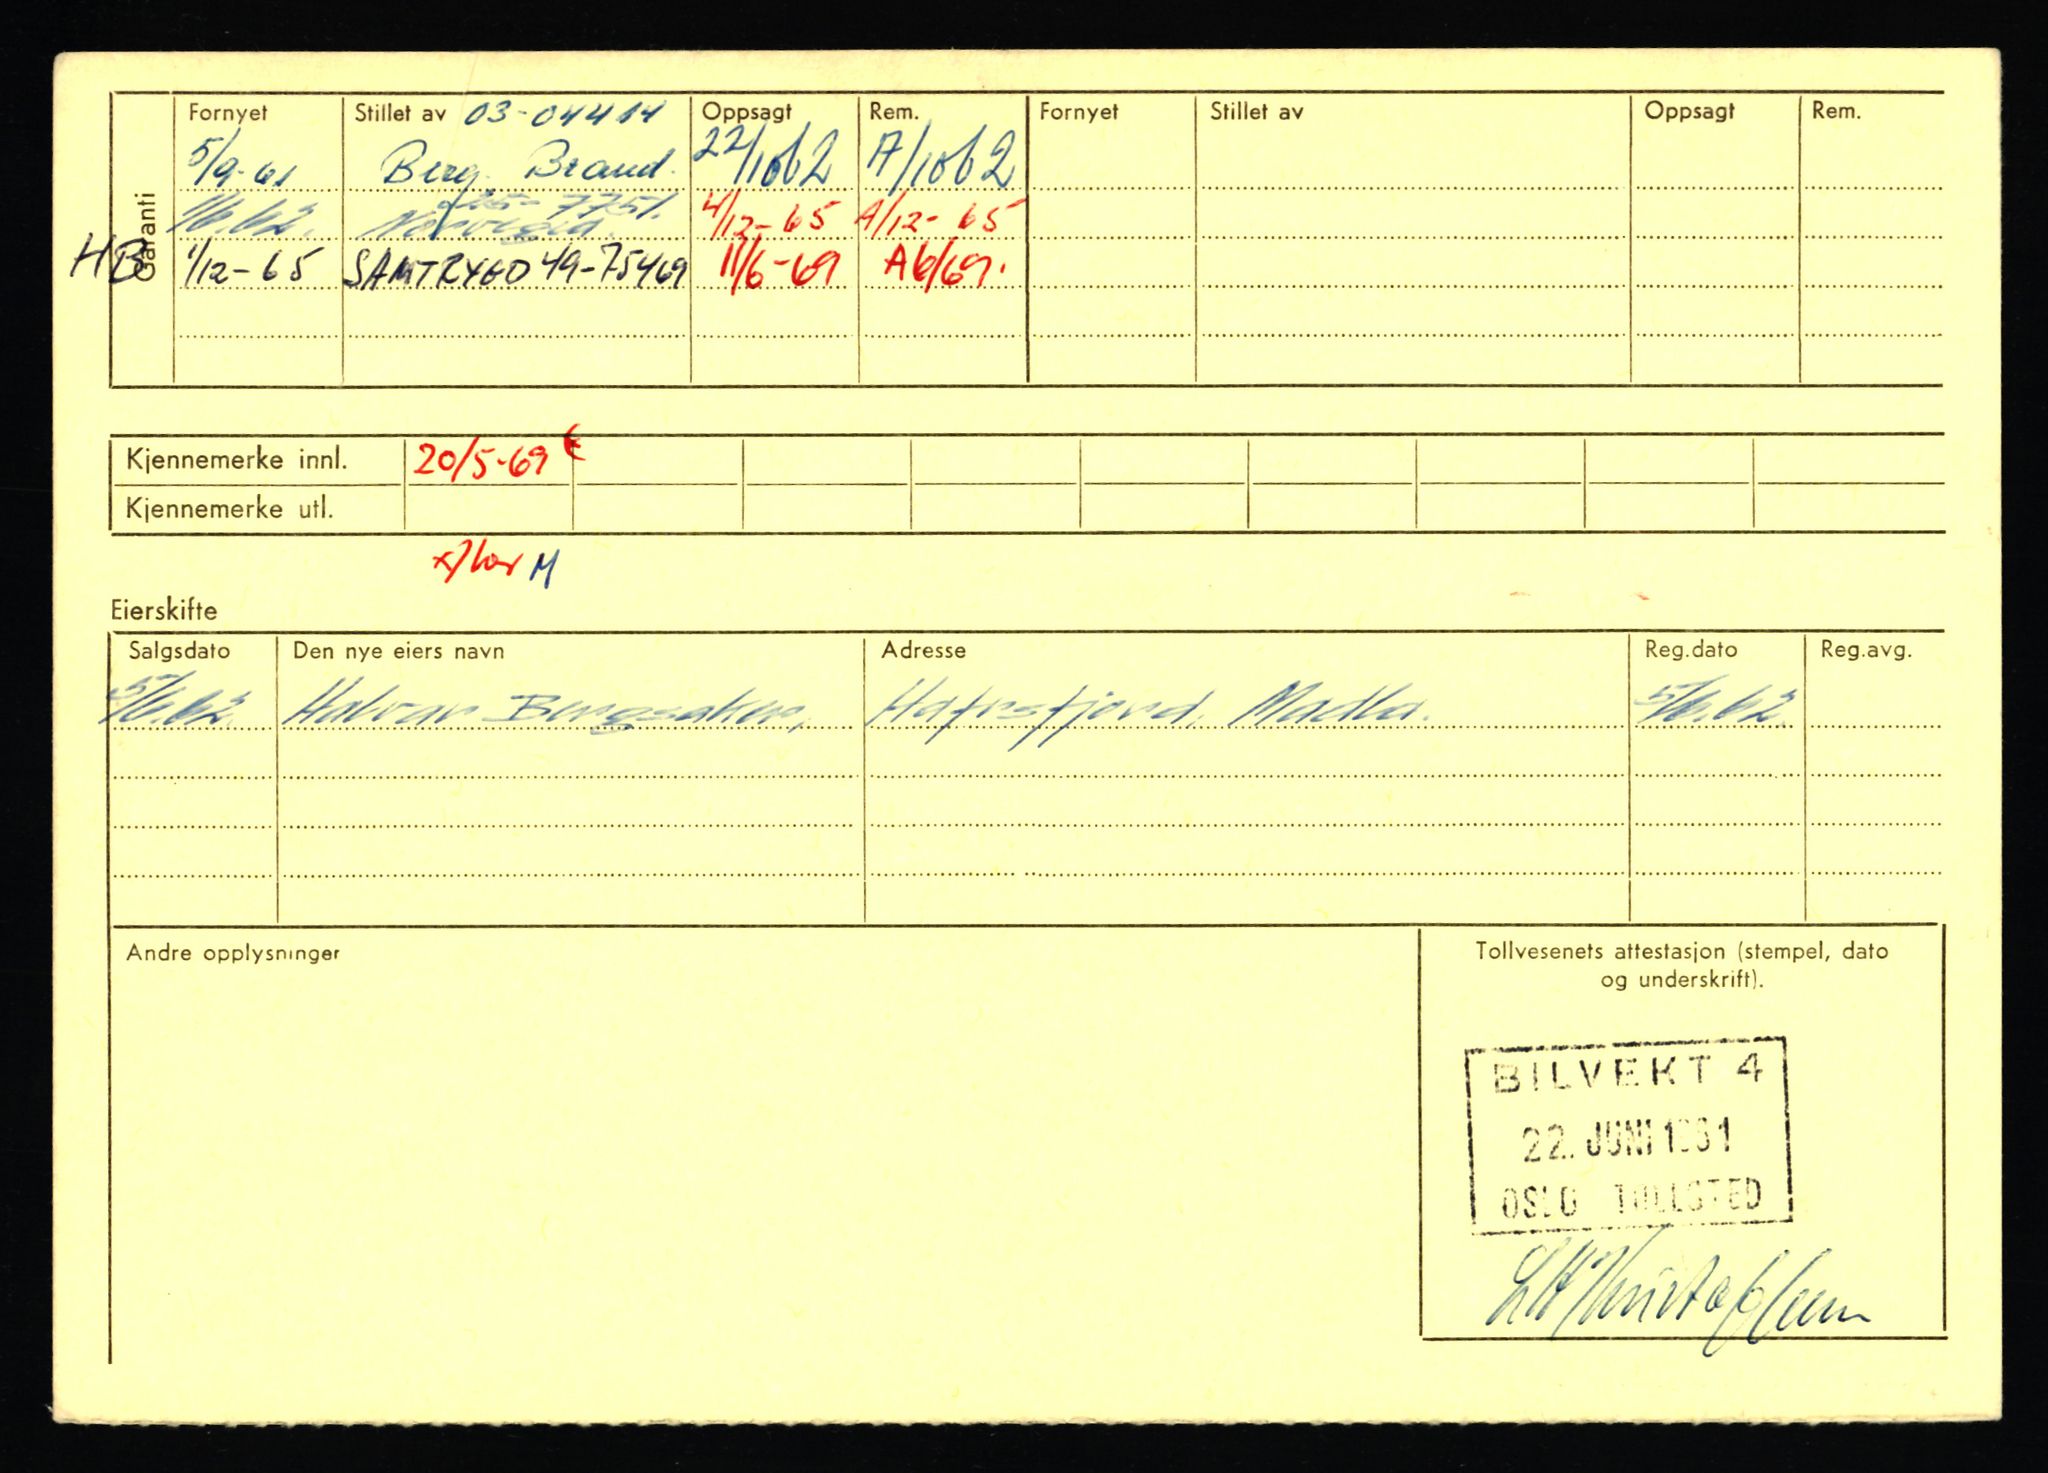 Fornyet Stillet av 03-04414 Oppsagt Rem. Fornyet Stillet av Oppsagt Rem.
Garanti
5/9-61 Berg. Brand. 22/1062 A/1062
1/6.62. Norvegia. 25-7751. 4/12-65 A/12-65
HB 1/12-65 SAMTRYGD 49-75469 11/6-69 A6/69.
Kjennemerke innl. 20/5-69
Kjennemerke utl.
x) har M
Eierskifte
Salgsdato Den nye eiers navn Adresse Reg.dato Reg.avg.
5/6.62. Halvar Bergsaker, Hafrsfjord, Madla. 5/6.62.
Andre opplysninger
Tollvesenets attestasjon (stempel, dato
og underskrift).
BILVEKT 4
22. JUNI 1961
OSLO TOLLSTED